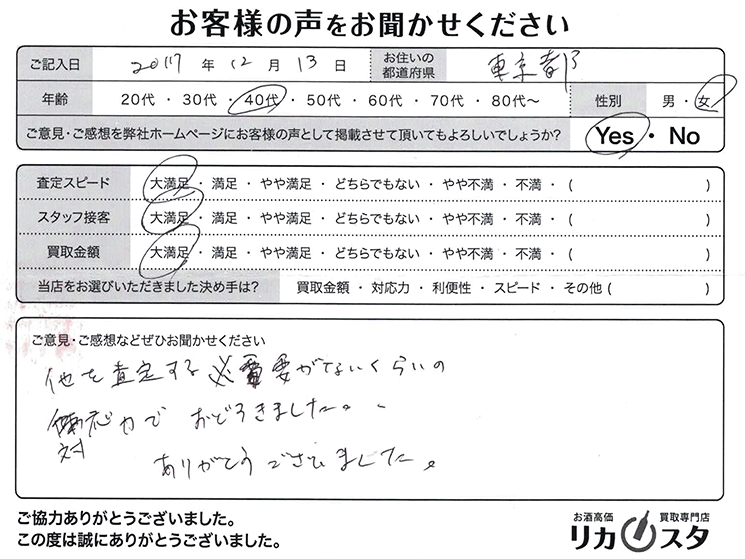 お客様の声をお聞かせください
ご記入日 2017 年 12 月 13 日 お住いの都道府県 東京都
年齢 20代 ・ 30代 ・ 40代 ・ 50代 ・ 60代 ・ 70代 ・ 80代〜 性別 男 ・ 女
ご意見・ご感想を弊社ホームページにお客様の声として掲載させて頂いてもよろしいでしょうか? Yes ・ No
査定スピード 大満足 ・ 満足 ・ やや満足 ・ どちらでもない ・ やや不満 ・ 不満 ・ ( )
スタッフ接客 大満足 ・ 満足 ・ やや満足 ・ どちらでもない ・ やや不満 ・ 不満 ・ ( )
買取金額 大満足 ・ 満足 ・ やや満足 ・ どちらでもない ・ やや不満 ・ 不満 ・ ( )
当店をお選びいただきました決め手は? 買取金額 ・ 対応力 ・ 利便性 ・ スピード ・ その他 ( )
ご意見・ご感想などぜひお聞かせください
他を査定する必要がないくらいの
対応力で おどろきました。
ありがとうございました。
ご協力ありがとうございました。
この度は誠にありがとうございました。
お酒高価 買取専門店
リカスタ